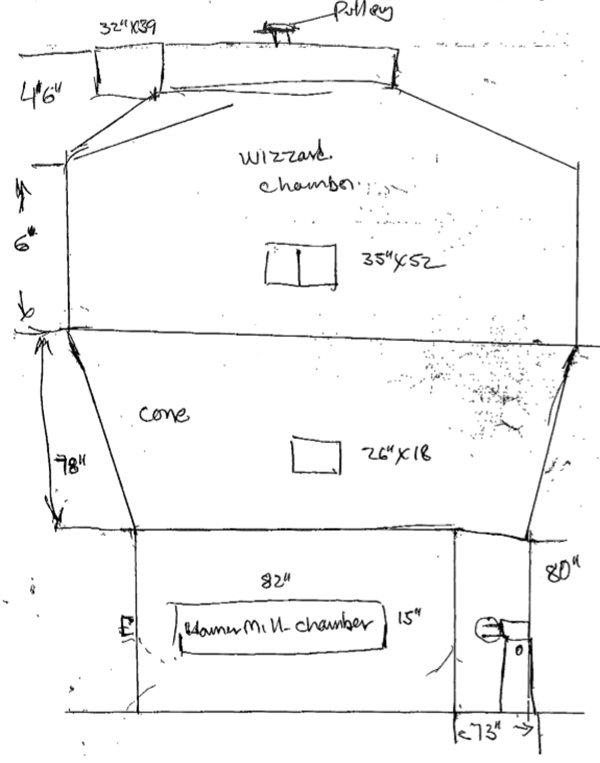 Pulley
32"X39
4"6"
Wizzard
chamber
6"
35"X52
cone
78"
26"X18
80"
82"
HamerMill-chamber
15"
0
<73"